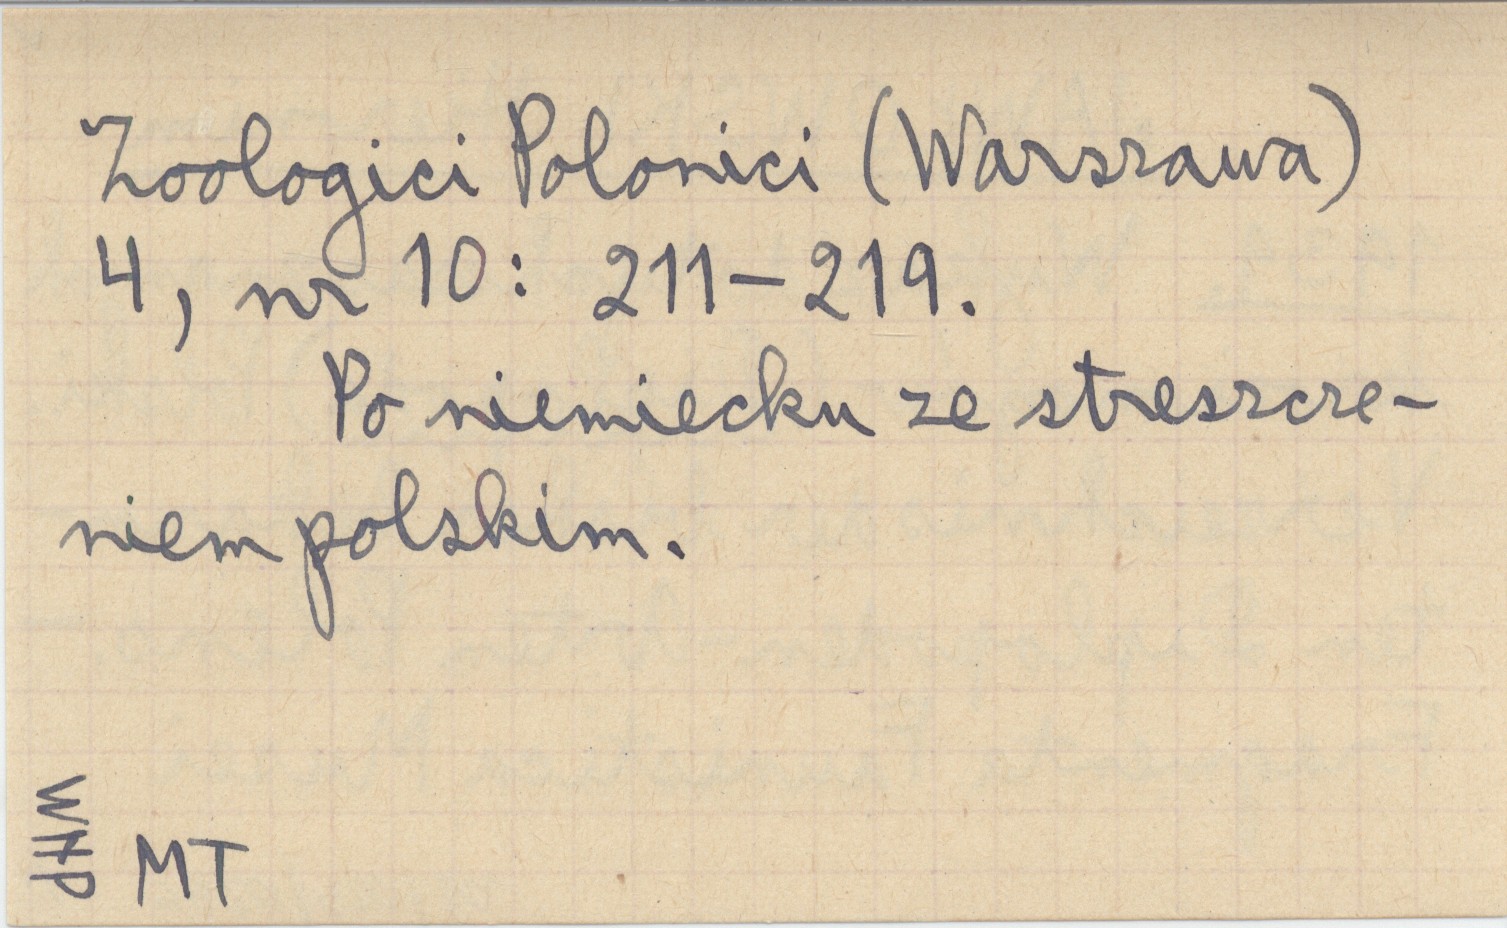 Zoologici Polonici (Warszawa)
4, nr 10: 211-219.
Po niemiecku ze streszcze-
niem polskim.
WNP
MT